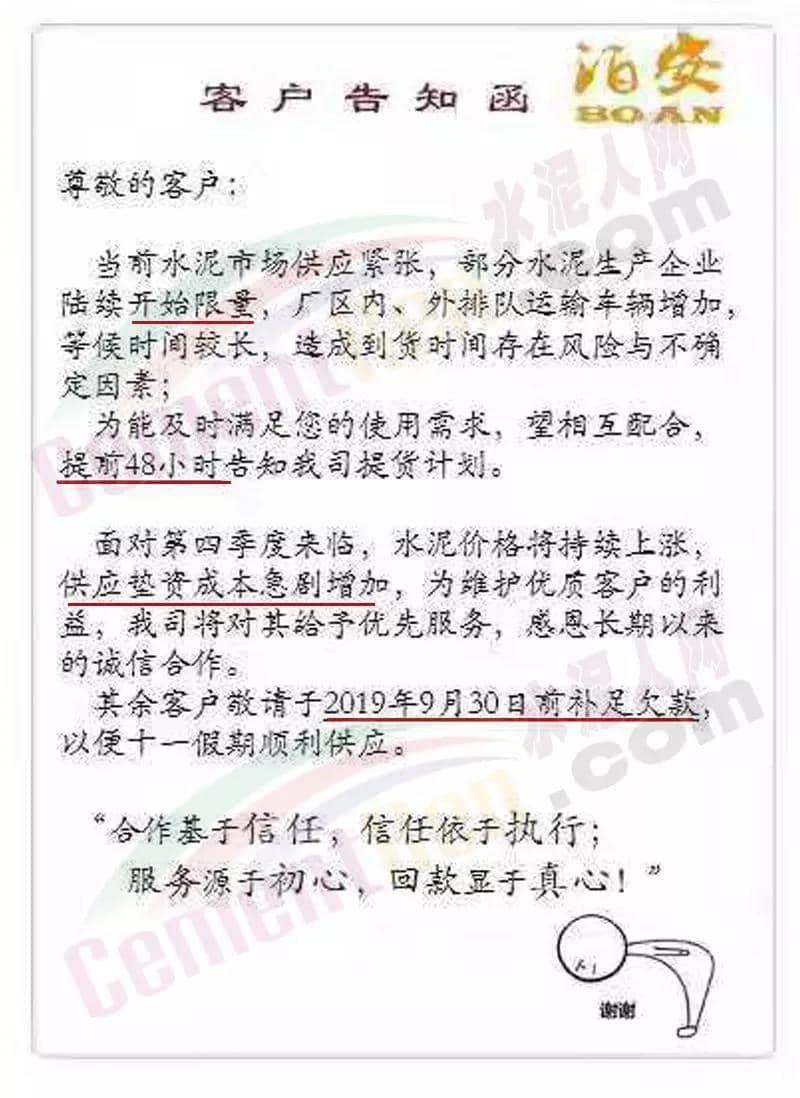 泊安
BOAN
客户告知函
尊敬的客户：
当前水泥市场供应紧张，部分水泥生产企业
陆续开始限量，厂区内、外排队运输车辆增加，
等候时间较长，造成到货时间存在风险与不确
定因素；
为能及时满足您的使用需求，望相互配合，
提前48小时告知我司提货计划。
面对第四季度来临，水泥价格将持续上涨，
供应垫资成本急剧增加，为维护优质客户的利
益，我司将对其给予优先服务，感恩长期以来
的诚信合作。
其余客户敬请于2019年9月30日前补足欠款，
以便十一假期顺利供应。
“合作基于信任，信任依于执行；
服务源于初心，回款显于真心！”
谢谢
水泥人网
CementRen.com
水泥人网
CementRen.com